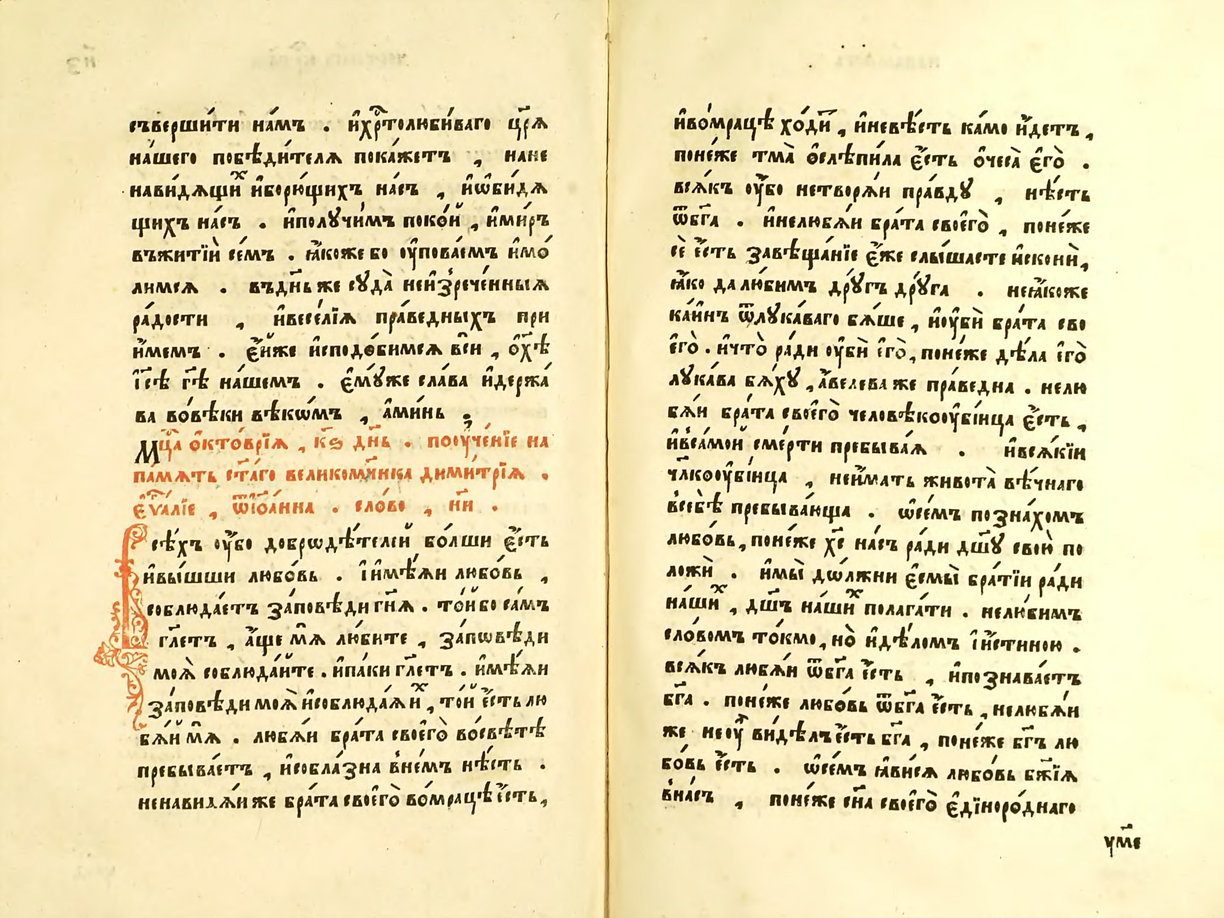 съверши́ти на́мъ . и҆хрⷭ҇толюби́ваго цр҃ѧ
на́шего побѣди́телѧ пока́жетъ , на не
нави́дѧщиⷯ и҆борю́щихъ на́съ , и҆ѡ҆би́дѧ
щихъ на́съ . и҆полꙋчи́мъ поко́й , и҆ми́ръ
въжитїѝ се́мъ . ꙗ҆́коже бо ѹ҆пова́емъ и҆мо́
лимсѧ . въдн҃ь же сꙋда̀ неи҆зрече́нныѧ
ра́дости , и҆весе́лїѧ пра́ведныхъ прі
и҆́мемъ . є҆ѧ́же и҆сподо́бимсѧ всѝ , ѡ҆хѣ҃
і҆с҃ѣ гд҃ѣ на́шемъ . є҆мꙋ́же сла́ва и҆держа́
ва вовѣ́ки вѣкѡ́мъ , а҆ми́нь
Мцⷭ҇а ѻ҆ктовріа , к҃ѕ дн҃ь . поѹче́нїе на
па́мѧть ст҃а́го великомⷱ҇ника дими́трїѧ .
є҆ѵⷢ҇а́лїе , ѿі҆ѡа́нна . сло́во , н҃и .
сѣ́хъ ѹ҆́бо добродѣ́телей бо́лши є҆́сть
и҆вы́шши любо́вь . і҆ и҆мѣ́ѧи любо́вь ,
соблюда́етъ за́повѣди гн҃ѧ . то́й бо са́мъ
гл҃етъ , а҆́ще мѧ̀ лю́бите , за́пѡвѣди
моѧ̀ соблюда́йте . и҆па́ки гл҃етъ . и҆мѣ́ѧи
за́повѣди моѧ̀ и҆соблюда́ѧиⷯ , то́й є҆́сть лю
бѧ́й мѧ̀ . любѧ́и бра́та своего̀ восвѣ́тѣ
пребыва́етъ , и҆собла́зна вне́мъ нѣ́сть .
ненави́дѧи же бра́та своего̀ вомра́цѣ є҆́сть ,
и҆вомра́цѣ хо́диⷮ , и҆невѣ́сть ка́мо и҆́детъ ,
поне́же тма̀ ѡ҆слѣпи́ла є҆́сть ѻ҆чеса̀ є҆го̀ .
всѧ́къ ѹ҆́бо нетворѧ́и пра́вдꙋ , нѣ́сть
ѿбг҃а . и҆нелюбѧ́и бра́та своего̀ , поне́же
сѐ є҆́сть завѣща́нїе є҆́же слы́шасте и҆скони̏ ,
ꙗ҆́ко да лю́бимъ дрꙋ́гъ дрꙋ́га . не ꙗ҆́коже
ка́инъ ѿлꙋка́ваго бѧ́ше , и҆ѹ҆бѝ бра́та сво
его̀ . и҆что̀ ра́ди ѹ҆бѝ є҆го̀ , поне́же дѣ́ла є҆го̀
лꙋка́ва бѧ́хꙋ , а҆́велева же пра́ведна . нелю
бѧ́и бра́та своего̀ человѣкоѹбі́йца є҆́сть ,
и҆всамо́й сме́рти пребыва́ѧ . и҆всѧ́кїи
чл҃коѹбі́йца , неи҆́мать живота̀ вѣ́чнаго
всебѣ̀ пребыва́юща . ѡ҆се́мъ позна́хомъ
любо́вь , поне́же хⷭ҇ѐ на́съ ра́ди дш҃ꙋ свою̀ по
ложѝ . и҆мы̀ до́лжни є҆смы̀ бра́тїи ра́ди
на́шиⷯ , дш҃ъ на́шиⷯ полага́ти . нелю́бимъ
сло́вомъ то́кмо , но̀ и҆дѣ́ломъ і҆и҆́стиною .
всѧ́къ любѧ́и ѿбг҃а є҆́сть , и҆познава́етъ
бг҃а . поне́же любо́вь ѿбг҃а є҆́сть , нелюбѧ́и
же неѹ҆̀ ви́дѣлъ є҆́сть бг҃а , поне́же бг҃ъ лю
бо́вь є҆́сть . ѡ҆се́мъ ꙗ҆ви́сѧ любо́вь бж҃їѧ
вна́съ , поне́же сн҃а своего̀ є҆дїноро́днаго